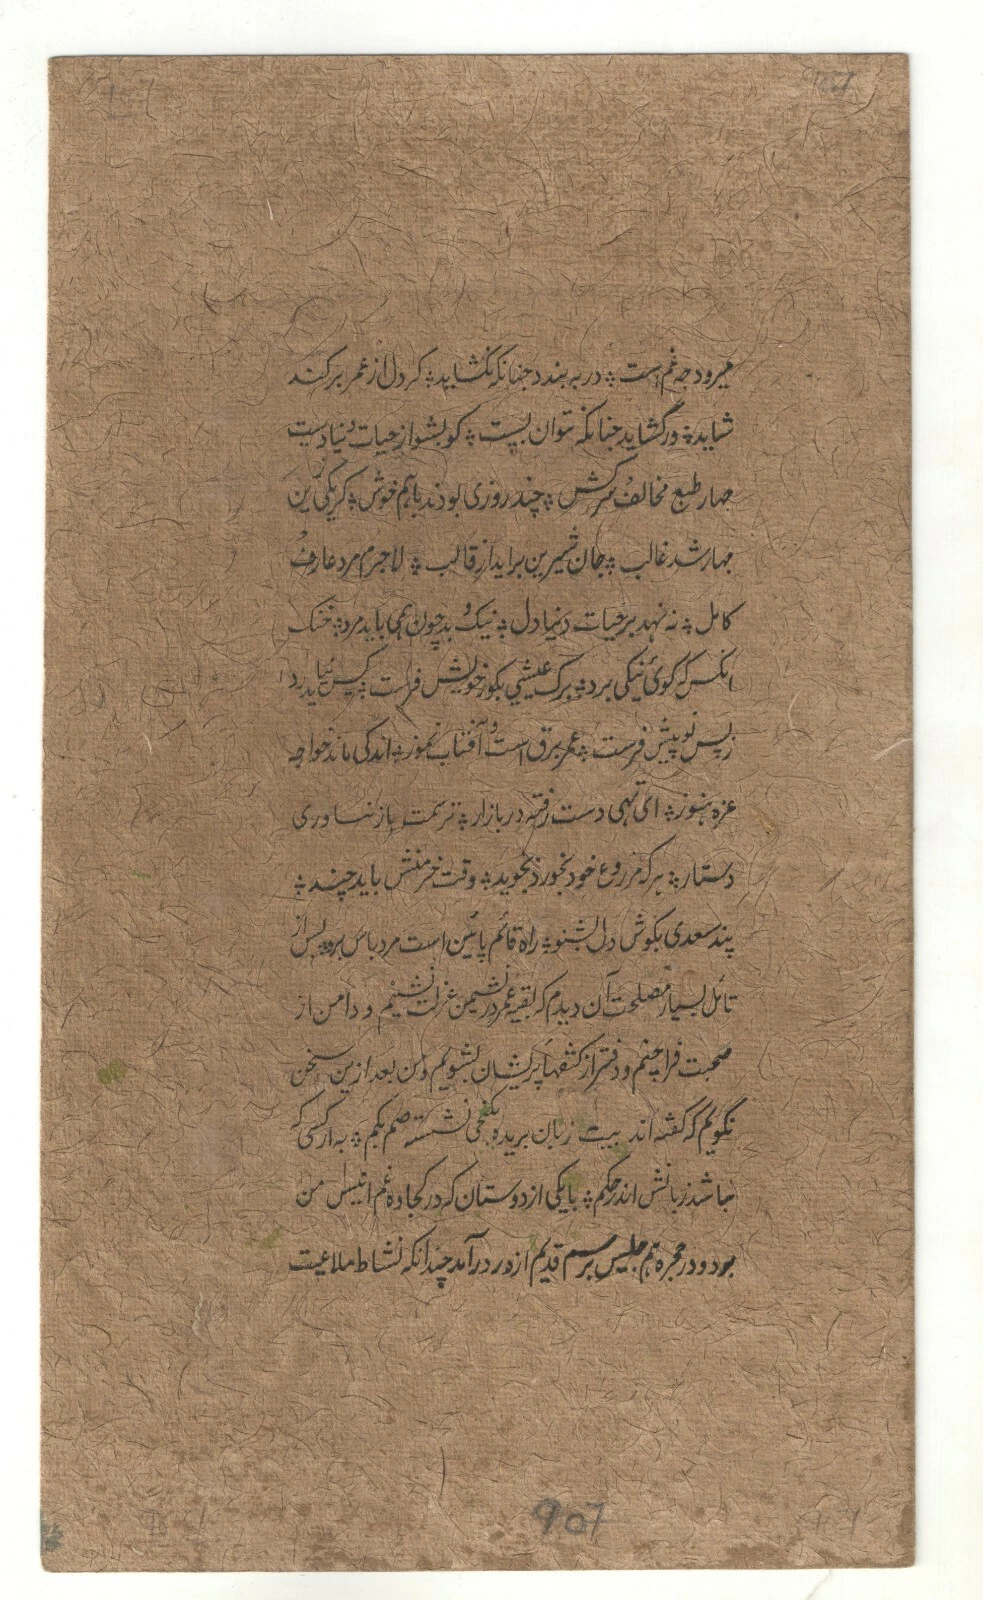 میرود چه غم است ؞ در به بندد چنانکه نگشاید ؞ کر دل از عمر برکند
شاید ؞ ور گشاید چنانکه نتوان بست ؞ کو بشو از حیات دنیا دست
چهار طبع مخالف سرکش ؞ چند روزی بودند باهم خوش ؞ کر یکی زین
چهار شد غالب ؞ جان شیرین براید از قالب ؞ لاجرم مرد عارف
کامل ؞ نه نهد بر حیات دنیا دل ؞ نیک و بد چون همی باید مرد ؞ خنک
انکس که کوئ نیکی برد ؞ برک عیشی بکور خویش فرست ؞ کس نیاید
ز پس تو پیش فرست ؞ عمر برق است و آفتاب تموز ؞ اندکی ماند خواجه
غره هنوز ؞ ای تهی دست رفته در بازار ؞ ترسمت باز نیاوری
دستار ؞ هر که مزروع خود بخورد بخوید ؞ وقت خرمنش باید چند ؞
پند سعدی بکوش دل بشنو ؞ راه قائم پائین است مرد باس برو ؞ پس از
تائل بسیار مصلحت آن دیدم که بقیه عمر در نشیمن عزلت نشینم و دامن از
صحبت فراچنم و دفتر از کفتهاء پریشان بشویم و من بعد ازین سخن
نگویم که کفته اند بیت زبان بریده بکنجی نشسته صم بکم ؞ به از کسی که
باشد زبانش اندر حکم ؞ تا یکی از دوستان که در کجاوه غم انیس من
بود و در حجره هم جلیس برسم قدیم از در درآمد چندانکه نشاط ملاعبت
907